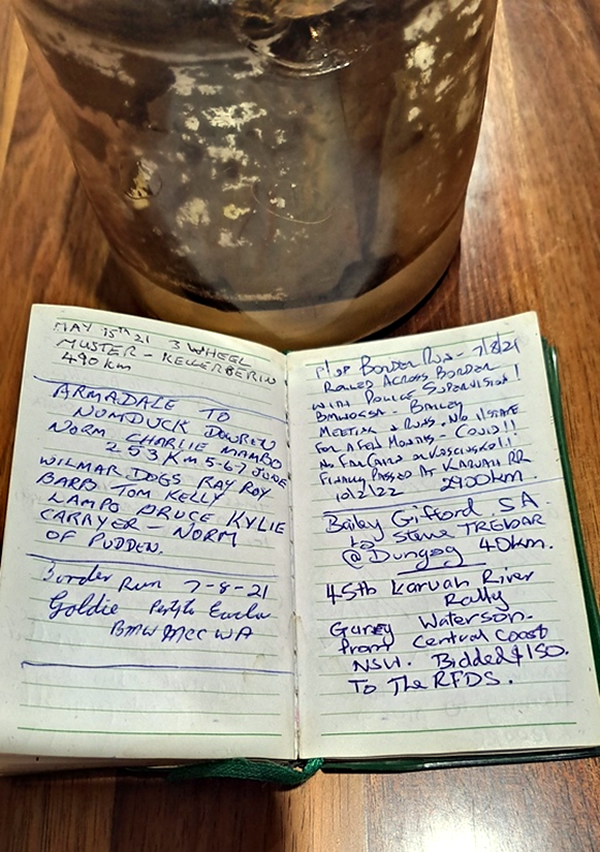 MAY 15TH 21 3 WHEEL
MUSTER - KELLERBERIN
490 km
ARMADALE TO
NUMDUCK DOWREN
NORM CHARLIE MAMBO
253 KM 5-6-7 JUNE
WILMAR DOGS RAY ROY
BARB TOM KELLY
LAMPS BRUCE KYLIE
CARRYER - NORM
OF PUDDEN.
Border Run 7-8-21
Goldie
BMW MCC WA
Border Run - 7/8/21
ROLLED ACROSS BORDER
WITH POLICE SUPERVISION!
BMWOCSA - BAILEY
MEETING & RUNS. NO
FOR A FEW MONTHS - COVID!!
NO FAR
FINALLY PASSED AT KARUAH RR
10/2/22 2900km.
Bailey Gifford SA
to Steve TREBAR
@ Dungog 40km.
45th Karuah River
Rally
Garey Waterson.
from Central Coast
NSW. Bidded $150.
To The RFDS.